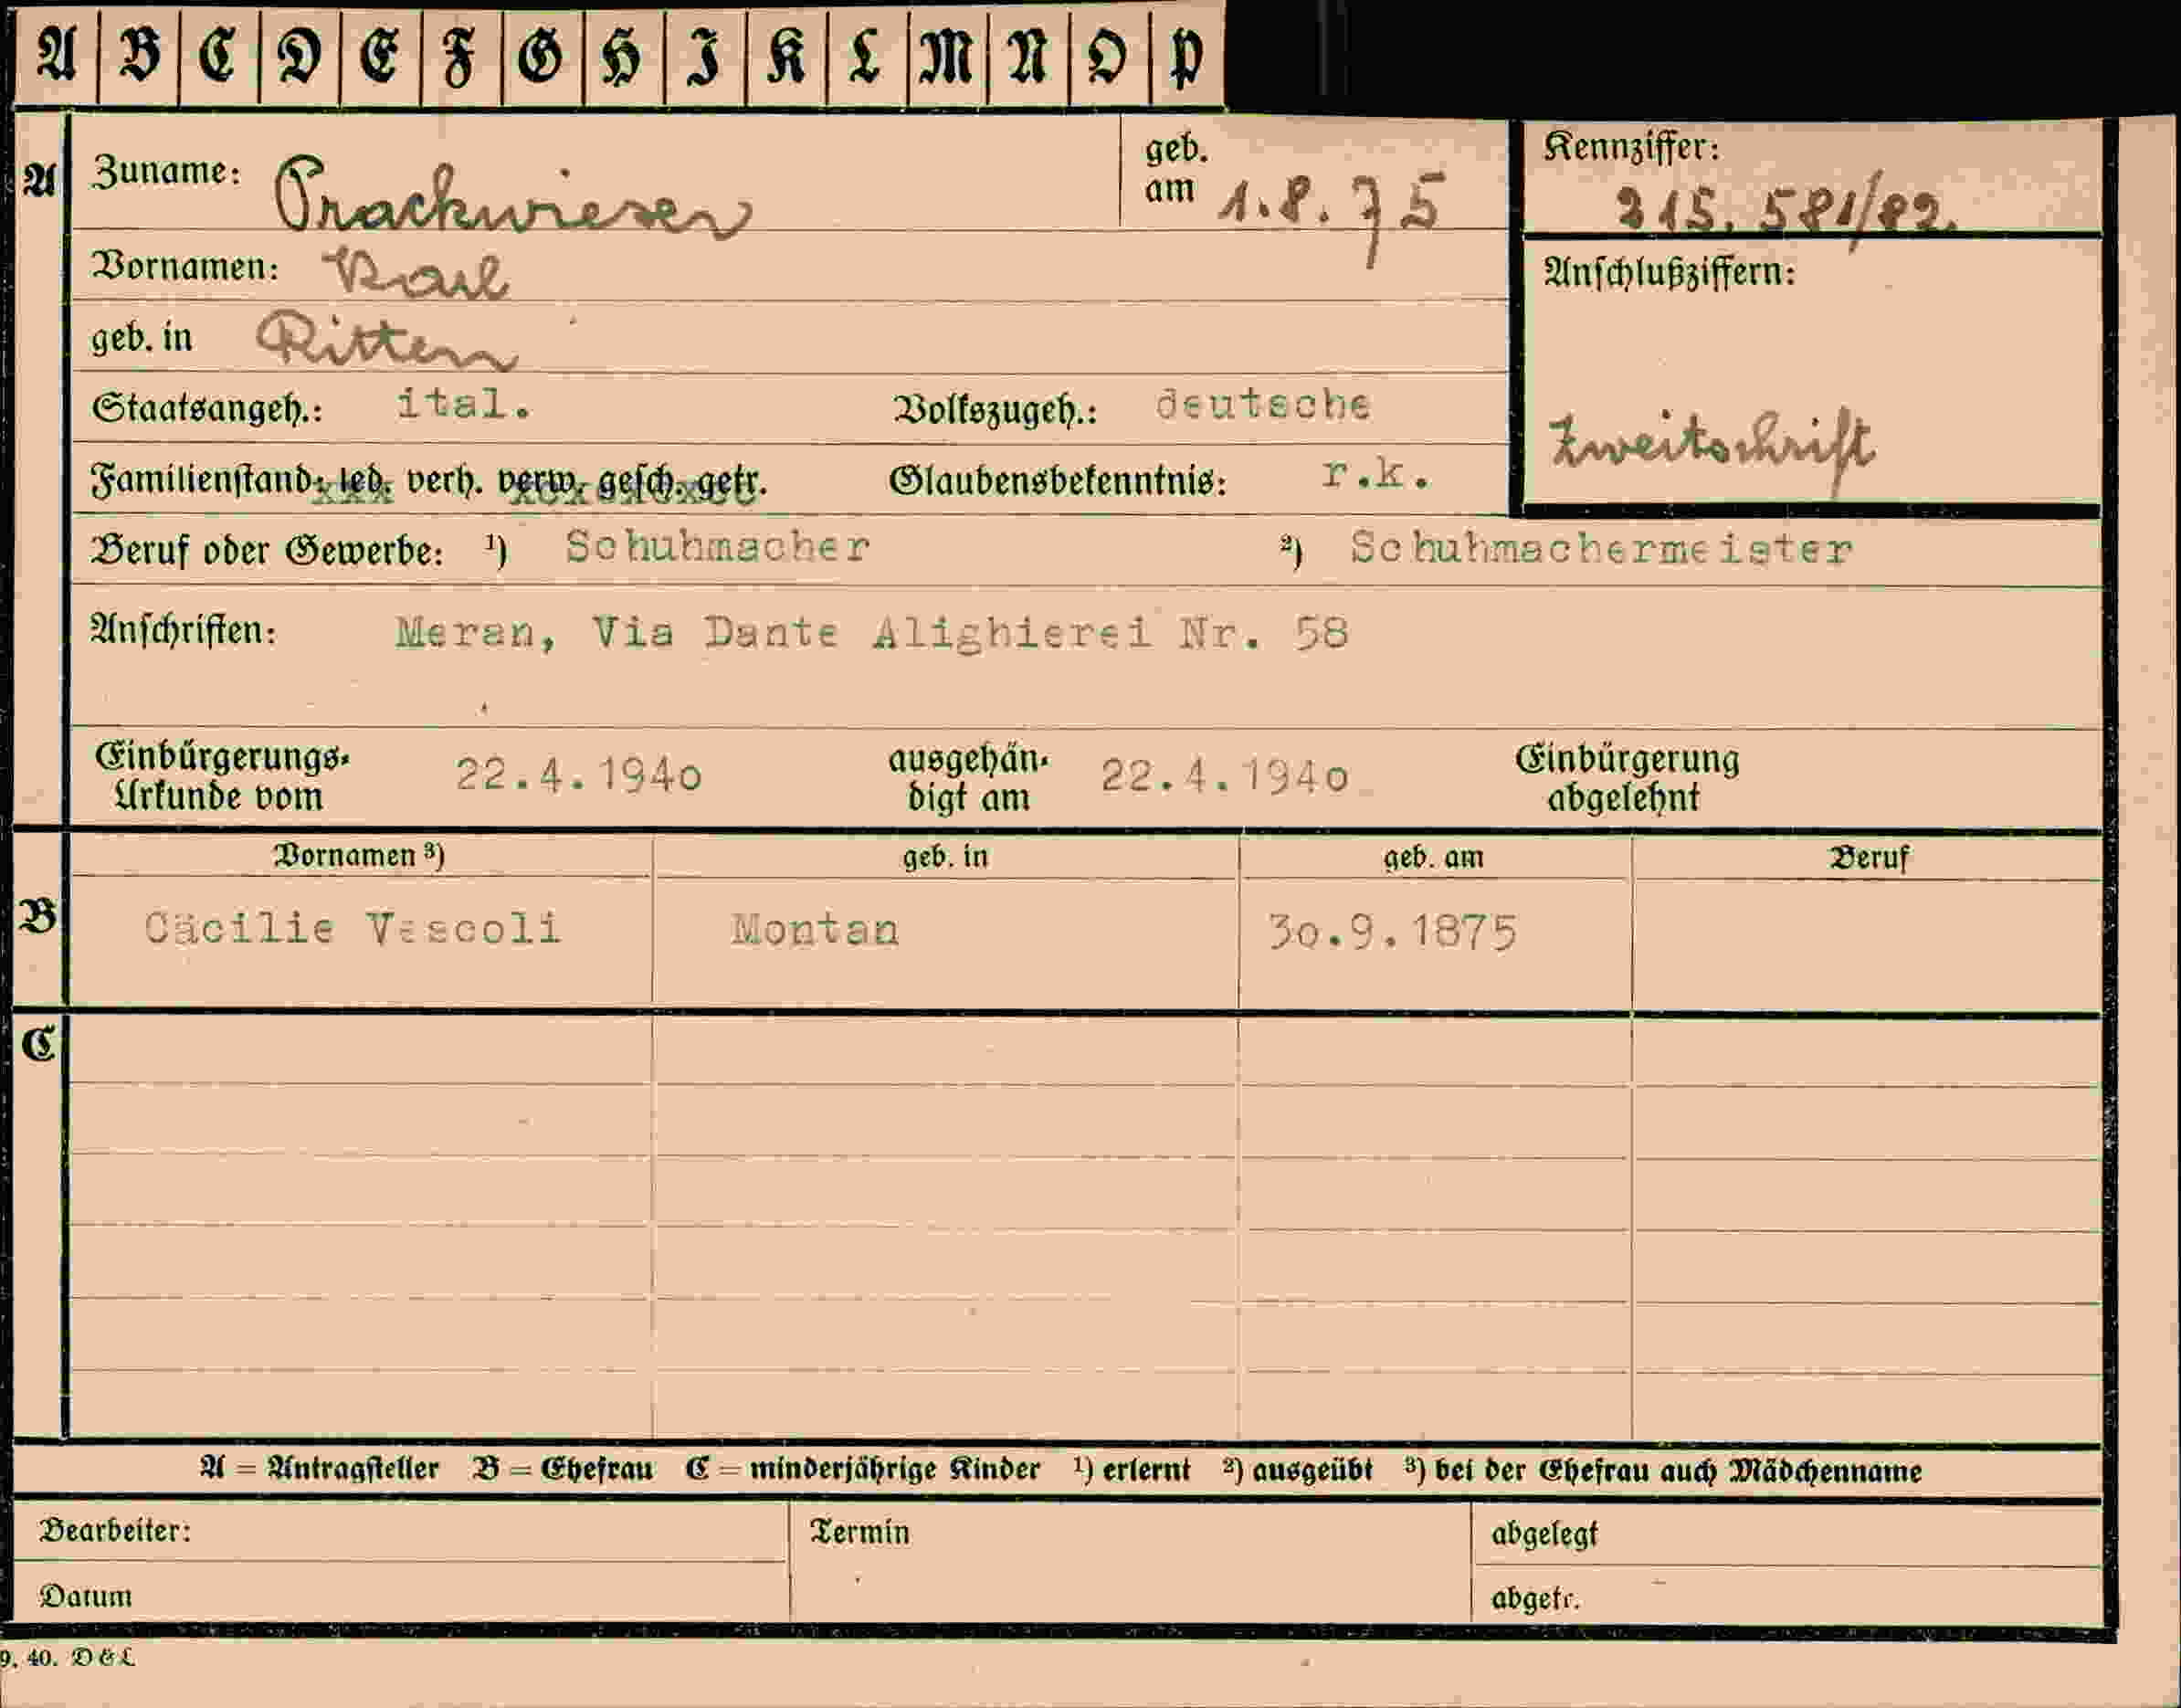 A B C D E F G H I K L M N O P
A Zuname: Prackwieser geb. am 1.8.75 Kennziffer: 215.581/82.
Vornamen: Karl Anschlußziffern:
geb. in Ritten
Staatsangeh.: ital. Volkszugeh.: deutsche Zweitschrift
Familienstand: led. verh. verw. gesch. getr. Glaubensbekenntnis: r.k.
Beruf oder Gewerbe: ¹) Schuhmacher ²) Schuhmachermeister
Anschriften: Meran, Via Dante Alighierei Nr. 58
Einbürgerungs- Urkunde vom 22.4.1940 ausgehän- digt am 22.4.1940 Einbürgerung abgelehnt
Vornamen ³) geb. in geb. am Beruf
B Cäcilie Vescoli Montan 30.9.1875
C
A = Antragsteller B = Ehefrau C = minderjährige Kinder ¹) erlernt ²) ausgeübt ³) bei der Ehefrau auch Mädchenname
Bearbeiter: Termin abgelegt
Datum abgetr.
9. 40. D & L